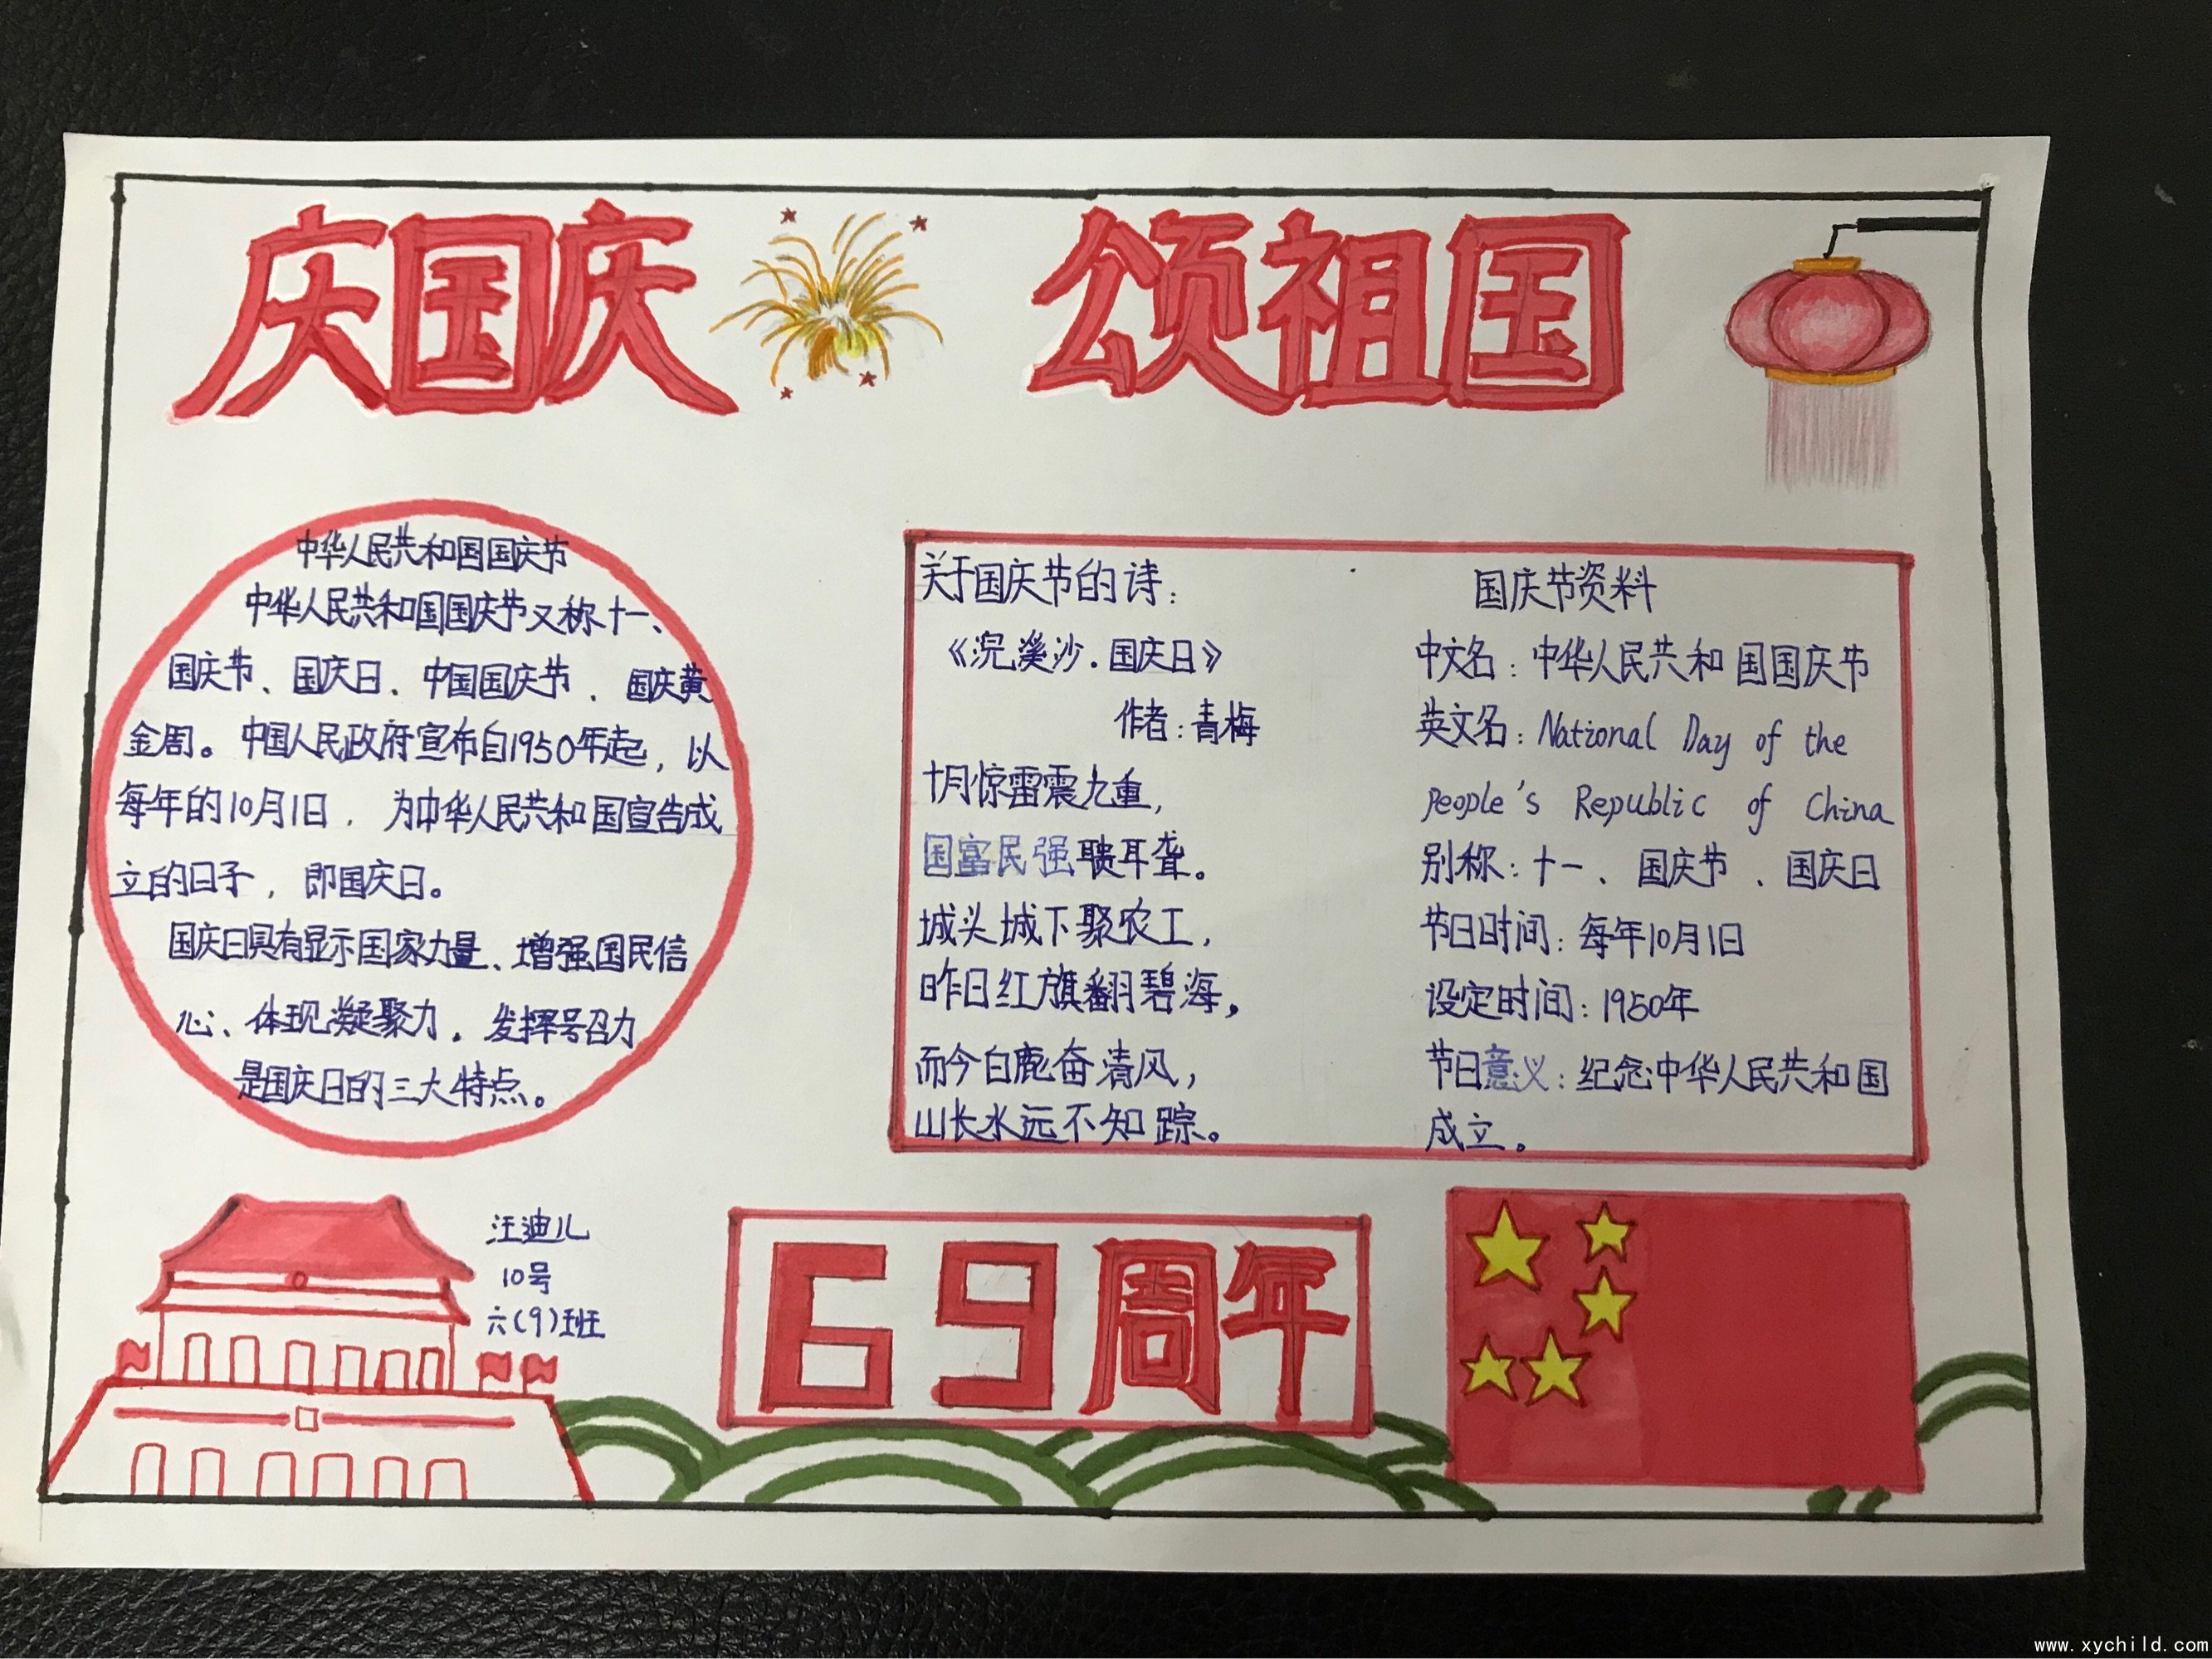 庆国庆 颂祖国
中华人民共和国国庆节
中华人民共和国国庆节又称十一、
国庆节、国庆日、中国国庆节、国庆黄
金周。中国人民政府宣布自1950年起，以
每年的10月1日，为中华人民共和国宣告成
立的日子，即国庆日。
国庆日具有显示国家力量、增强国民信
心、体现凝聚力，发挥号召力
是国庆日的三大特点。
关于国庆节的诗：
《浣溪沙.国庆日》
作者：青梅
十月惊雷震九重，
国富民强聩耳聋。
城头城下聚农工，
昨日红旗翻碧海，
而今白鹿奋清风，
山长水远不知踪。
国庆节资料
中文名：中华人民共和国国庆节
英文名：National Day of the
People's Republic of China
别称：十一、国庆节、国庆日
节日时间：每年10月1日
设定时间：1950年
节日意义：纪念中华人民共和国
成立。
汪迪儿
10号
六(9)班
69周年
www.xychild.com